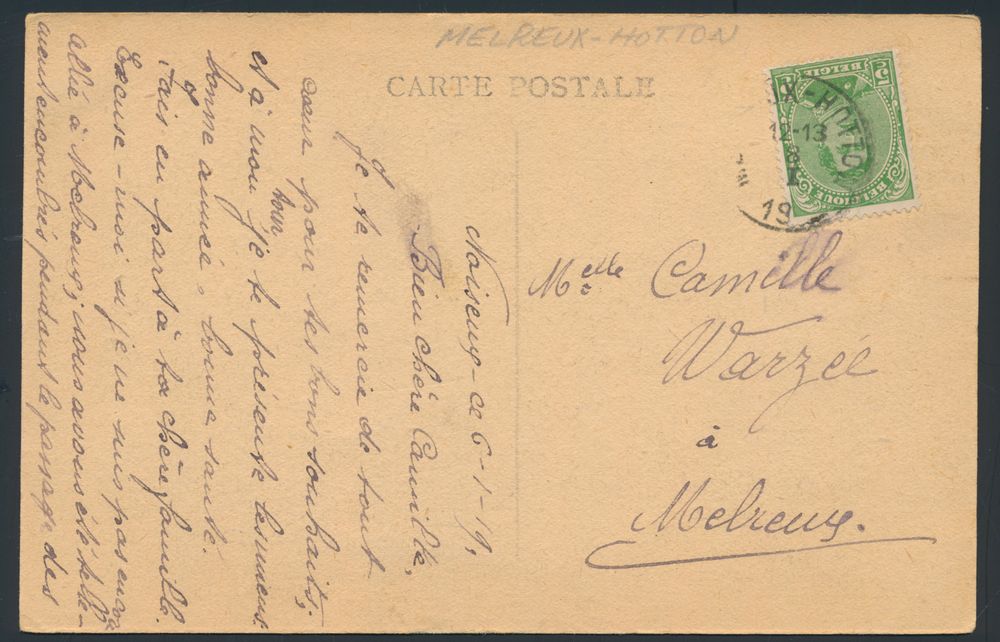 MELREUX-HOTTON
CARTE POSTALE
5c BELGIE 5c
BELGIQUE
UX-HOTTO
12-13
I
19
Melle Camille
Warzée
à
Melreux.
Noiseux-ce 6-1-19.
Bien chère Camille,
Je te remercie de tout
cœur pour tes bons souhaits;
et à mon tour je te présente les miens
bonne année, bonne santé.
Fais en part à ta chère famille.
Excuse-moi si je ne suis pas encore
allée à Melreux; nous avons été telle-
ment encombrés pendant le passage des